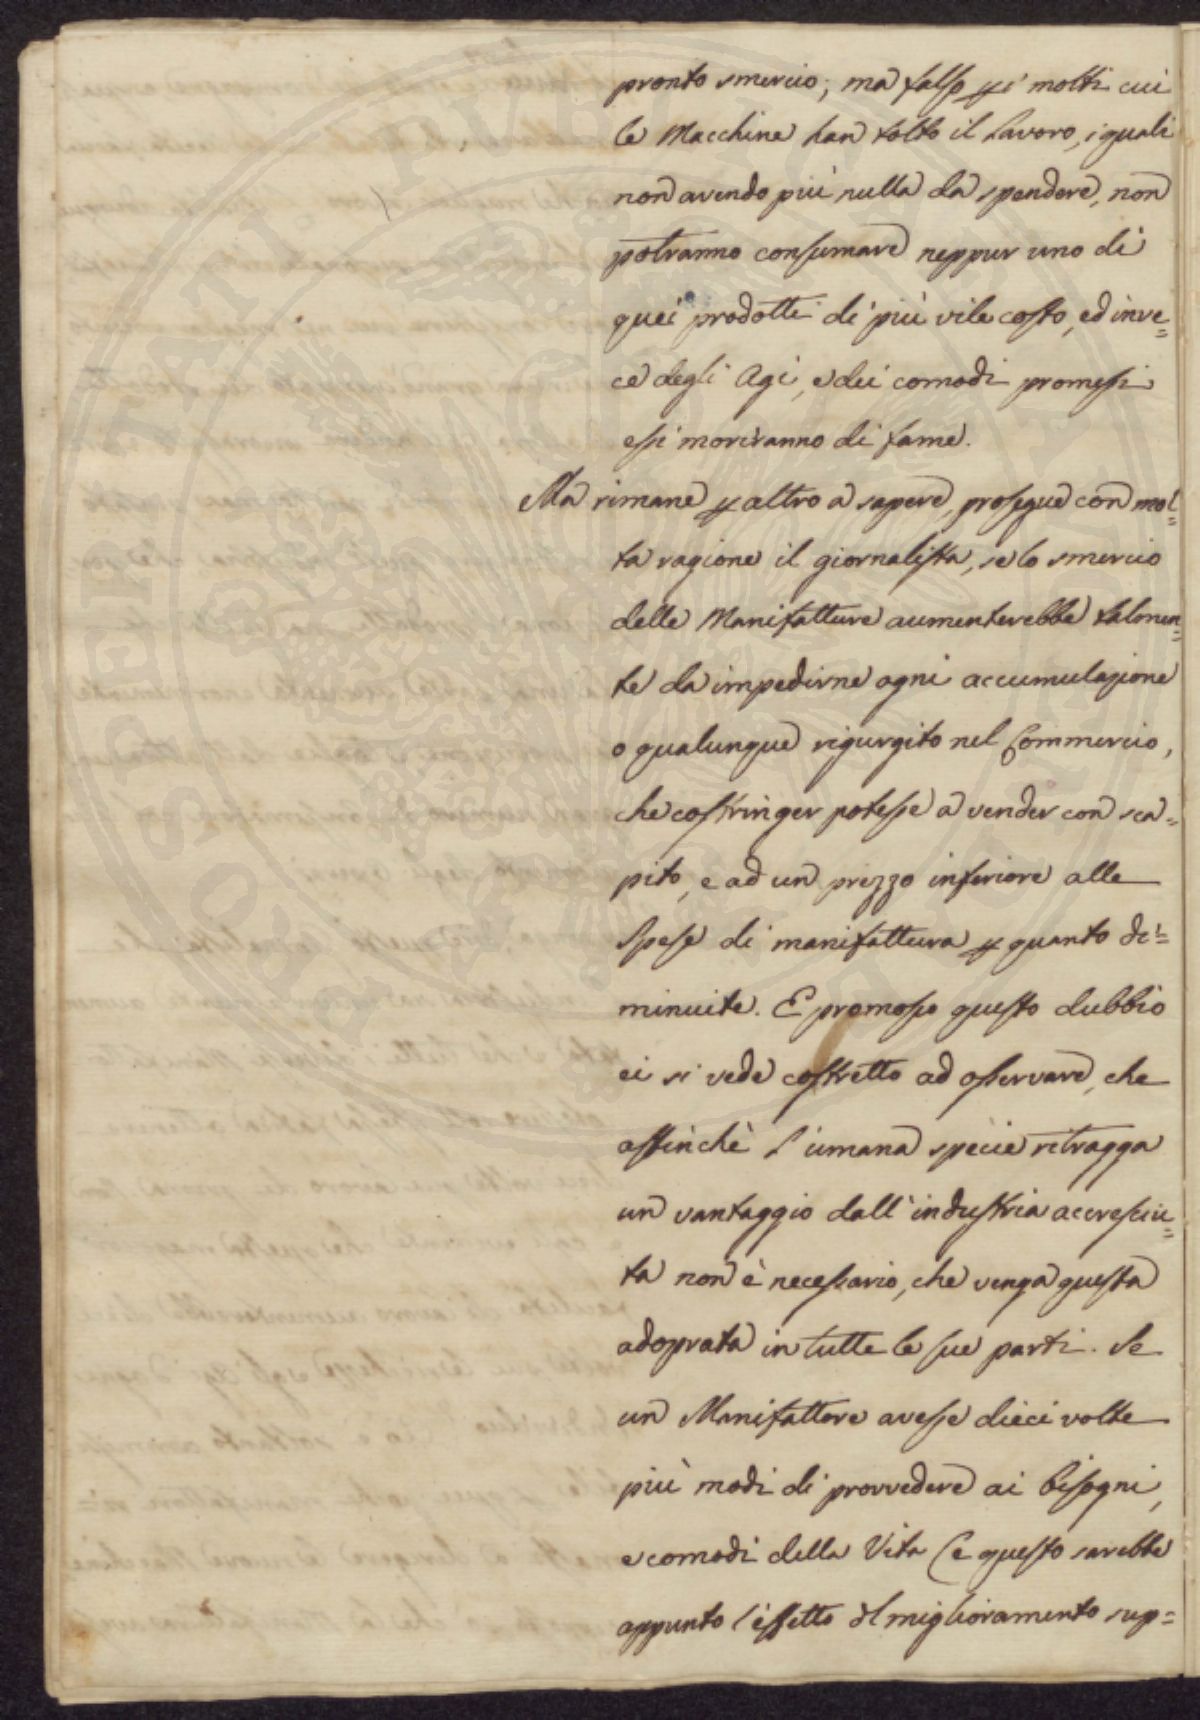 pronto smercio; ma falso p i molti cui
le Macchine han tolto il lavoro, i quali
non avendo più nulla da spendere, non
potranno consumare neppur uno di
quei prodotti di più vile costo, ed inve=
ce degli Agi, e dei comodi promessi
essi moriranno di fame.
Ma rimane p altro a sapere, prosegue con mol=
ta ragione il giornalista, se lo smercio
delle Manifatture aumenterebbe talmen=
te da impedirne ogni accumulazione
o qualunque rigurgito nel Commercio,
che costringer potesse a vender con sca=
pito, e ad un prezzo inferiore alle
spese di manifattura p quanto di=
minuite. E promosso questo dubbio
ei si vede costretto ad osservare, che
affinchè l'umana specie ritragga
un vantaggio dall'industria accresciu=
ta non è necessario, che venga questa
adoprata in tutte le sue parti. Se
un Manifattore avesse dieci volte
più modi di provvedere ai bisogni,
e comodi della Vita (e questo sarebbe
appunto l'effetto del miglioramento sup=